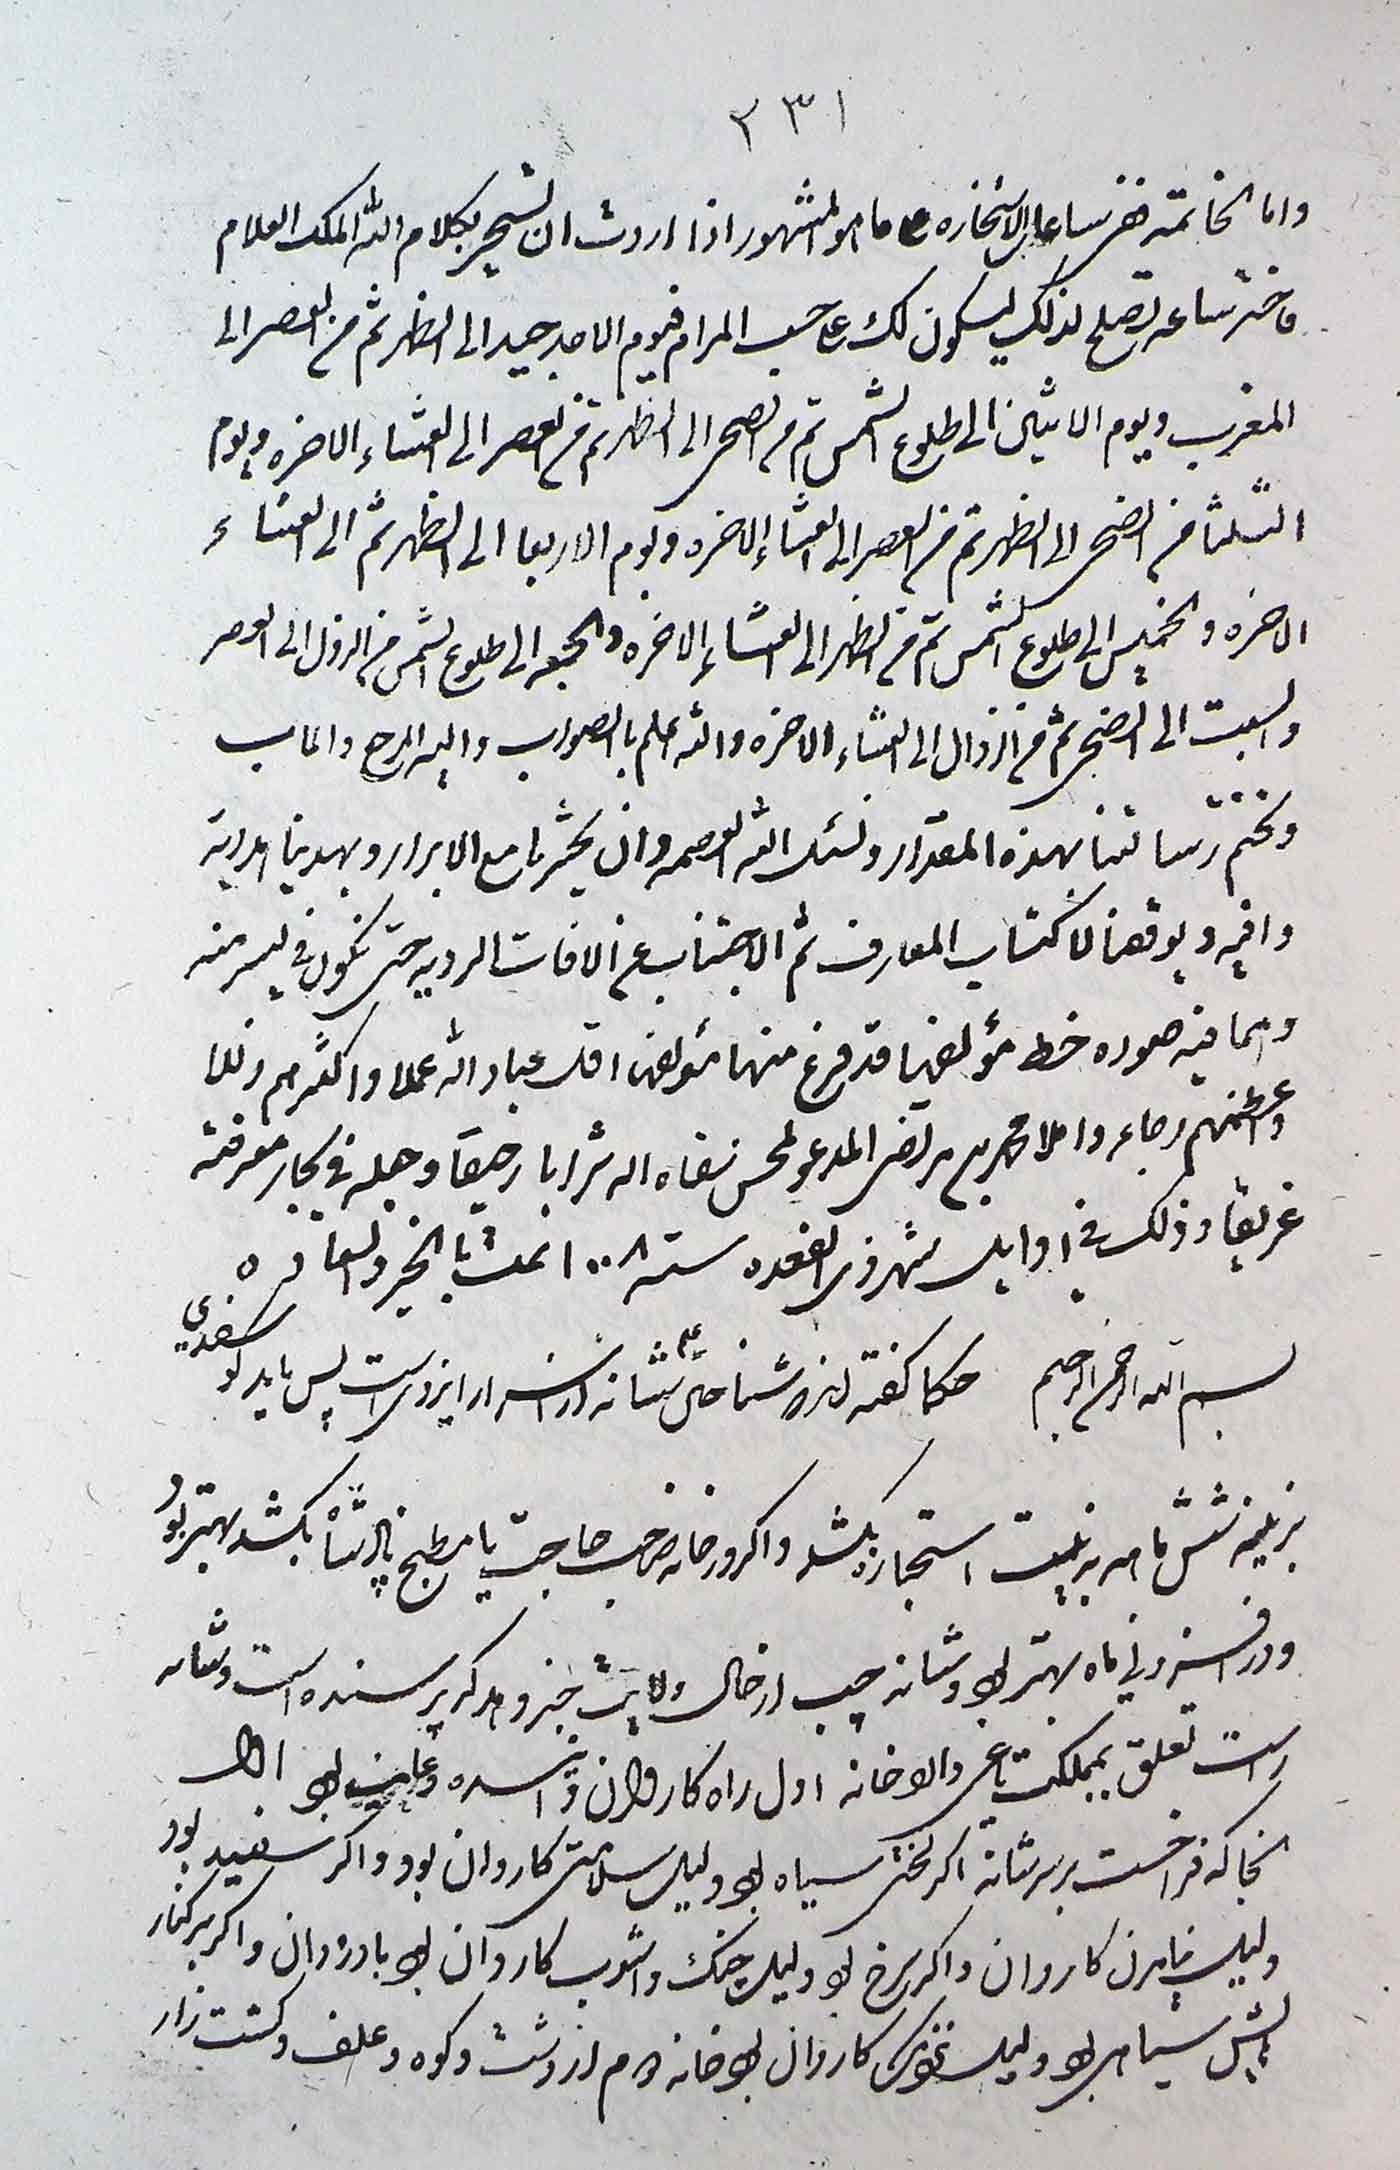 ٢٣١
واما الخاتمة ففی ساعات الاستخاره علی ما هو المشهور اذا اردت ان تستخیر بکلام الله الملک العلام
فاختر ساعه تصلح لذلک لیکون لک علی حسب المرام فیوم الاحد جید الی الظهر ثم من العصر الی
المغرب ویوم الاثنین الی طلوع الشمس ثم من الضحی الی الظهر ثم من العصر الی العشاء الاخره ویوم
الثلثا من الضحی الی الظهر ثم من العصر الی العشاء الاخره ویوم الاربعا الی الظهر ثم الی العشاء
الاخره والخمیس الی طلوع الشمس ثم من الظهر الی العشاء الاخره والجمعه الی طلوع الشمس من الزوال الی العصر
والسبت الی الضحی ثم من الزوال الی العشاء الاخره والله اعلم بالصواب والیه المرجع والماب
ونختم رسالتنا بهذه المقدار ونسئل الله العصمه وان یحشرنا مع الابرار ویهدینا هدایة
وافیه ویوفقنا لاکتساب المعارف ثم الاجتناب عن الافات الردیه حتی نکون فی یسر منه
ومما فیه صوره خط مؤلفها قد فرغ منها مؤلفها اقل عباد الله عملا واکثرهم زللا
واعظمهم رجاء واملا محمد بن مرتضی المدعو بمحسن سقاه الله شرابا رحیقا وجعله فی بحار معرفته
غریقا وذلک فی اوایل شهر ذی القعده سنه ١٠٠٨ تمت بالخیر والسعاده
بسم الله الرحمن الرحیم حکما گفته اند شناختن علم شانه از اسرار ایزدیست پس باید گوسفندی
بزینه شش ماهه به نیت استخاره بکشد واگر در خانه صاحب حاجت یا مطبخ پادشاه بکشد بهتر بود
ودر افزونی ماه بهتر بود وشانه چپ از حال ولایت خبر دهد که پرسنده است وشانه
راست تعلق بمملکت یاغی دارد خانه اول راه کاروان
انجا که فراخست بر سر شانه اگر لختی سیاه بود دلیل سلامتی کاروان بود واگر سفید بود
دلیل نیامدن کاروان واگر سرخ بود دلیل جنک واشوب کاروان بود با دزدان واگر بر کنار
پیش سیاهی بود دلیل کاروان بود خانه دوم از دشت وکوه وعلف وکشت زار